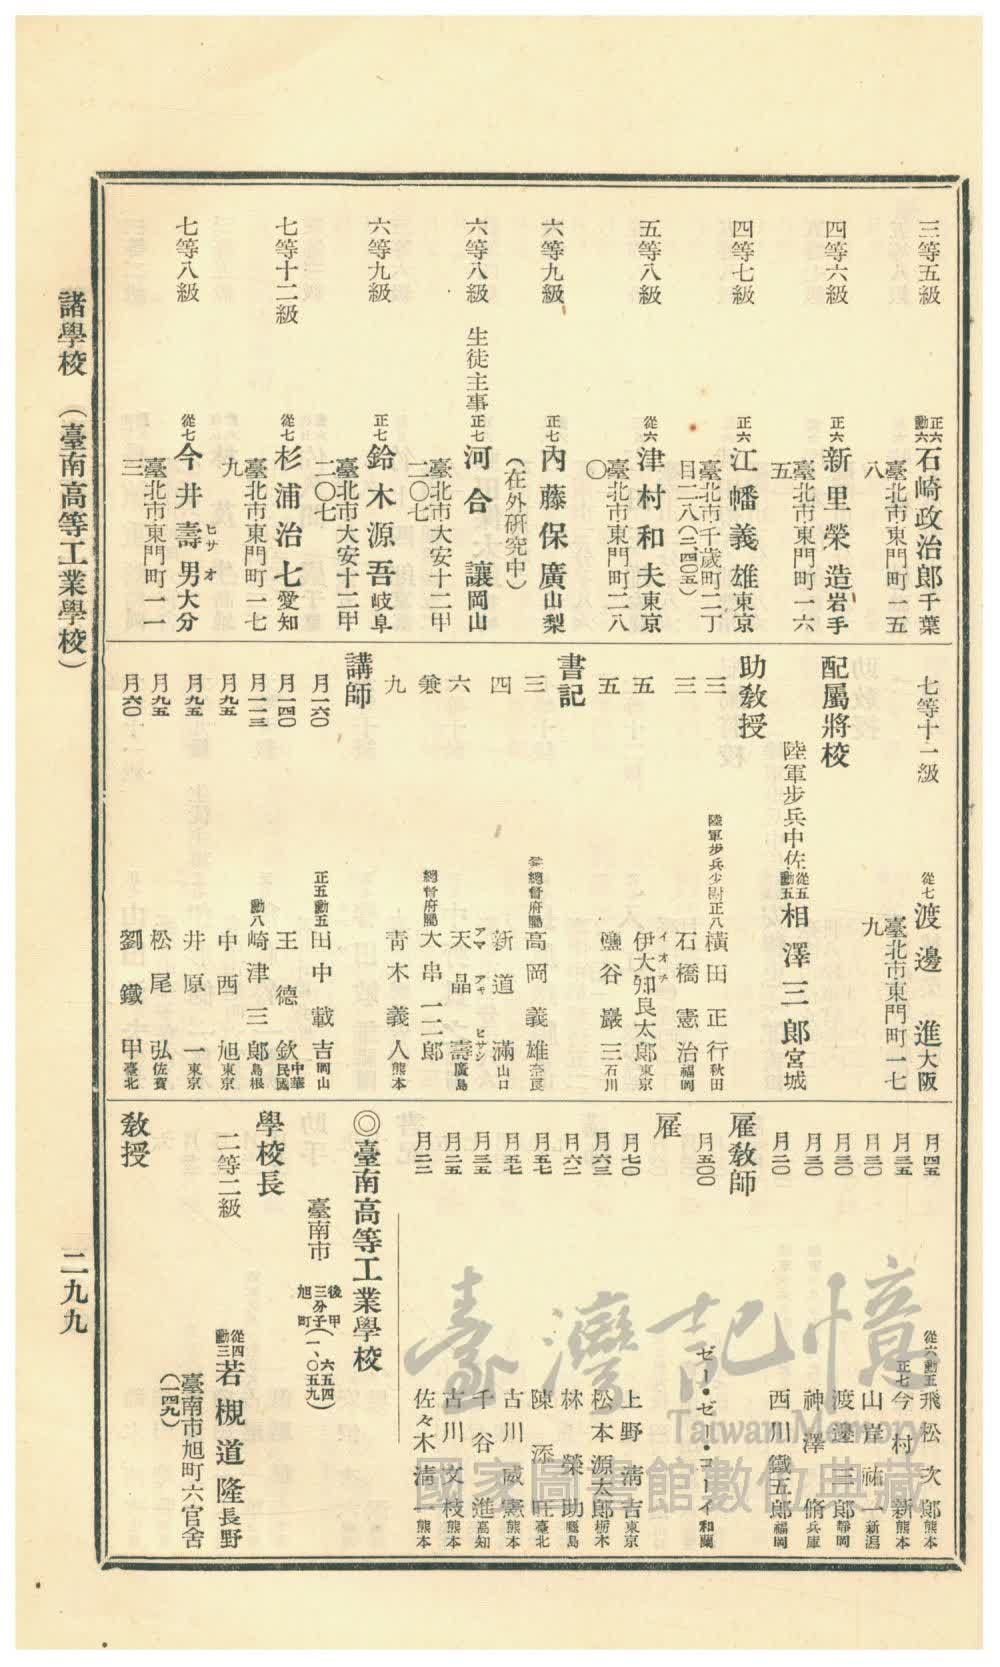 三等五級 正六勳六 石崎政治郎 千葉
臺北市東門町一五八
四等六級 正六 新里榮造 岩手
臺北市東門町一六五
四等七級 正六 江幡義雄 東京
臺北市千歲町二丁目二八(三四〇五)
五等八級 從六 津村和夫 東京
臺北市東門町二二八〇
六等九級 正七 內藤保廣 山梨
(在外研究中)
六等八級 生徒主事 正七 河合讓 岡山
臺北市大安十二甲二〇七
六等九級 正七 鈴木源吾 岐阜
臺北市大安十二甲二〇七
七等十二級 從七 杉浦治七 愛知
臺北市東門町一七九
七等八級 從七 今井壽男 大分
ヒサオ
臺北市東門町一一三
七等十一級 從七 渡邊進 大阪
臺北市東門町一七九
配屬將校
陸軍步兵中佐 從五勳五 相澤三郎 宮城
助教授
三 陸軍步兵少尉正八 橫田正行 秋田
三 石橋憲治 福岡
五 伊大知良太郎 東京
イオチ
五 鹽谷巖三 石川
書記
三 兼總督府屬 高岡義雄 奈良
四 新道滿 山口
六 天晶壽 廣島
アマ アキ ヒサシ
兼 總督府屬 大串一二郎
九 青木義人 熊本
講師
月一六〇 正五勳五 田中載吉 岡山
月一四〇 王德欽 中華民國
月一一三 勳八 崎津三郎 島根
月九五 中西旭 東京
月九五 井原一 東京
月九五 松尾弘 佐賀
月六〇 劉鐵甲 臺北
月四五 從六勳五 飛松次郎 熊本
月三五 正七 今村新 熊本
月三〇 山岸祐一 新潟
月三〇 渡邊三郎 靜岡
月三〇 神澤脩 兵庫
月二〇 西川鐵五郎 福岡
雇教師
月五〇〇 ゼー・ゼー・コーイ 和蘭
雇
月七〇 上野清吉 東京
月六三 松本源太郎 栃木
月六二 林榮助 福島
月五七 陳添旺 臺北
月五七 古川威憲 熊本
月三五 千谷進 高知
月二五 古川文枝 熊本
月二二 佐々木清一 熊本
◎臺南高等工業學校
臺南市 後甲三分子旭町(六五四一、〇五九)
學校長
二等二級 從四勳三 若槻道隆 長野
臺南市旭町六官舍(一四九)
教授
諸學校 (臺南高等工業學校)
二九九
臺灣記憶
Taiwan Memory
國家圖書館數位典藏